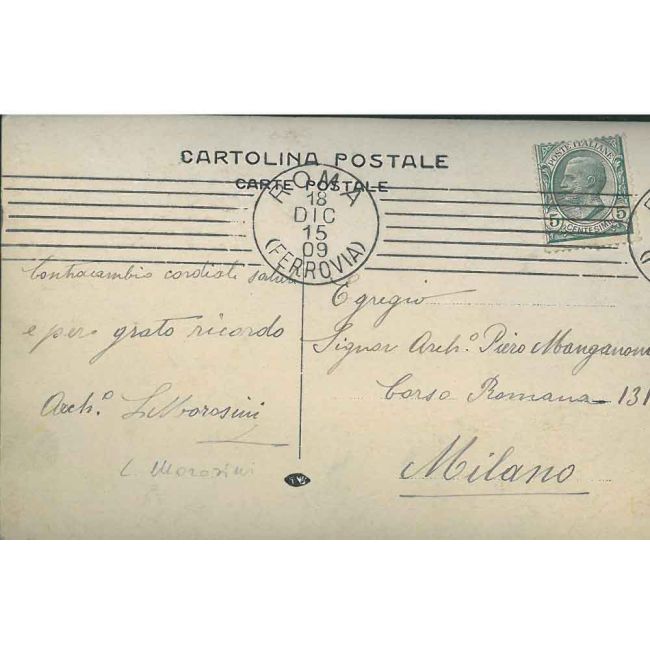 CARTOLINA POSTALE
CARTE POSTALE
ROMA
18
DIC
15
09
(FERROVIA)
POSTE ITALIANE
5 5
CENTESIMI
Contracambio cordiali saluti
e per grato ricordo
Arch.° L. Morosini
L. Morosini
Egregio
Signor Arch.° Piero Manganoni
Corso Romana - 131
Milano